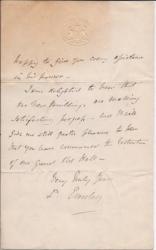 happy to give you every assistance
in his power —
I am delighted to hear that
the New Buildings are making
satisfactory progress — and it will
give me still greater pleasure to hear
that you have commenced the restoration
of the Grand Old Hall —
Very truly yours